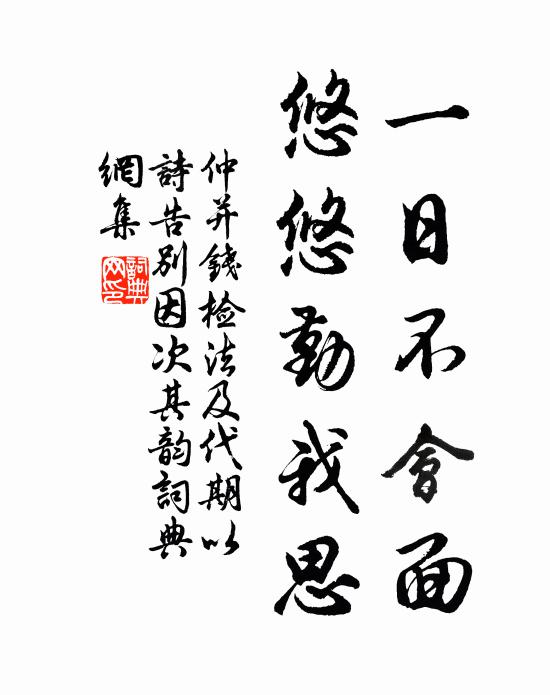 一日不會面
悠悠勤我思
仲并錢檢法及代期以
詩告别因次其韵詞典
網集
詞典網印